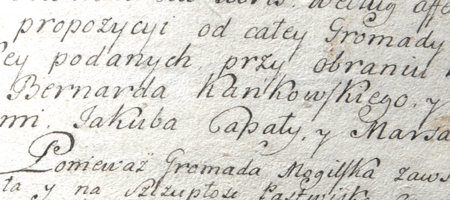 według
propozycyi od całey Gromady
ey podanych, przy obraniu
Bernarda Kańkowskiego, y
nn. Jakuba Capały, y Marsa
Ponieważ Gromada Mogilska zaws
ta y na szczupłość Pastwisk